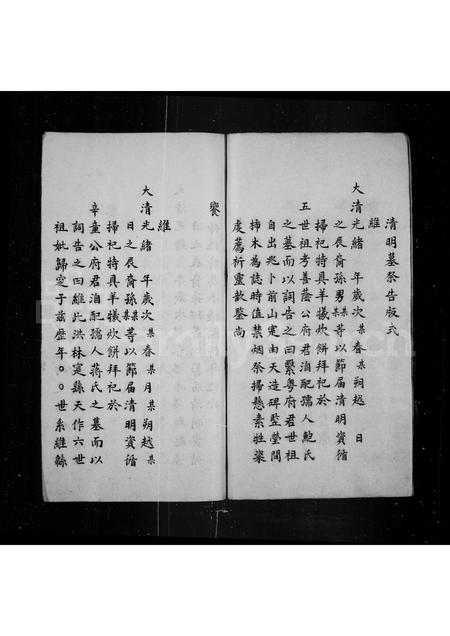 清明墓祭告版式
維
大清光緒 年歲次某春某朔越 日
之辰裔孫男某某等以節届清明資循
掃祀特具羊犧炊餅拜祀於
五世祖考善蔭公府君洎配孺人鮑氏
之墓而以詞告之曰繄粵府君世祖
自出兆卜前山寔由天造碑竪塋間
柿木為誌時值禁烟祭掃懸素牲粢
虔薦祈靈歆尚
饗
維
大清光緒 年歲次某春某月某朔越某
日之辰裔孫某某等以節届清明資循
掃祀特具羊犧炊餅拜祀於
辛童公府君洎配孺人蔣氏之墓而以
詞告之曰維此洪林寔縣天作六世
祖妣歸定于茲歷年〇〇世系維緜